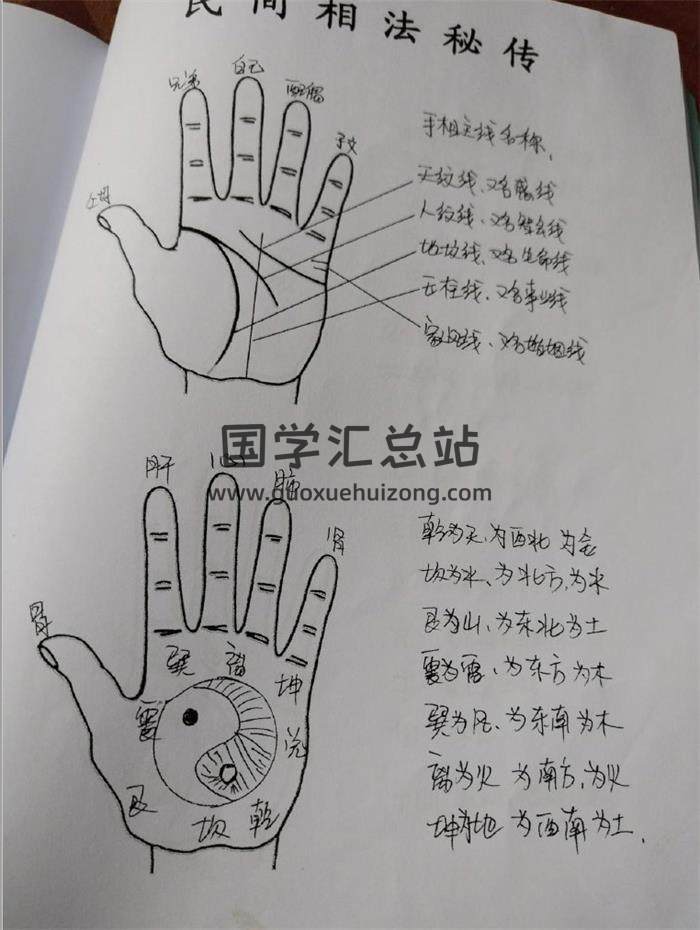 民间相法秘传
兄弟
自己
配偶
子女
父母
手相主线名称、
天纹线、又名感情线
人纹线、又名智慧线
地纹线、又名生命线
玉柱线、又名事业线
家风线、又名婚姻线
国学汇总站
www.guoxuehuizong.com
肝
心
肺
肾
胃
巽
离
坤
震
兑
艮
坎
乾
乾为天、为西北 为金
坎为水、为北方、为水
艮为山、为东北 为土
震为雷、为东方 为木
巽为风、为东南 为木
离为火 为南方、为火
坤为地 为西南 为土.